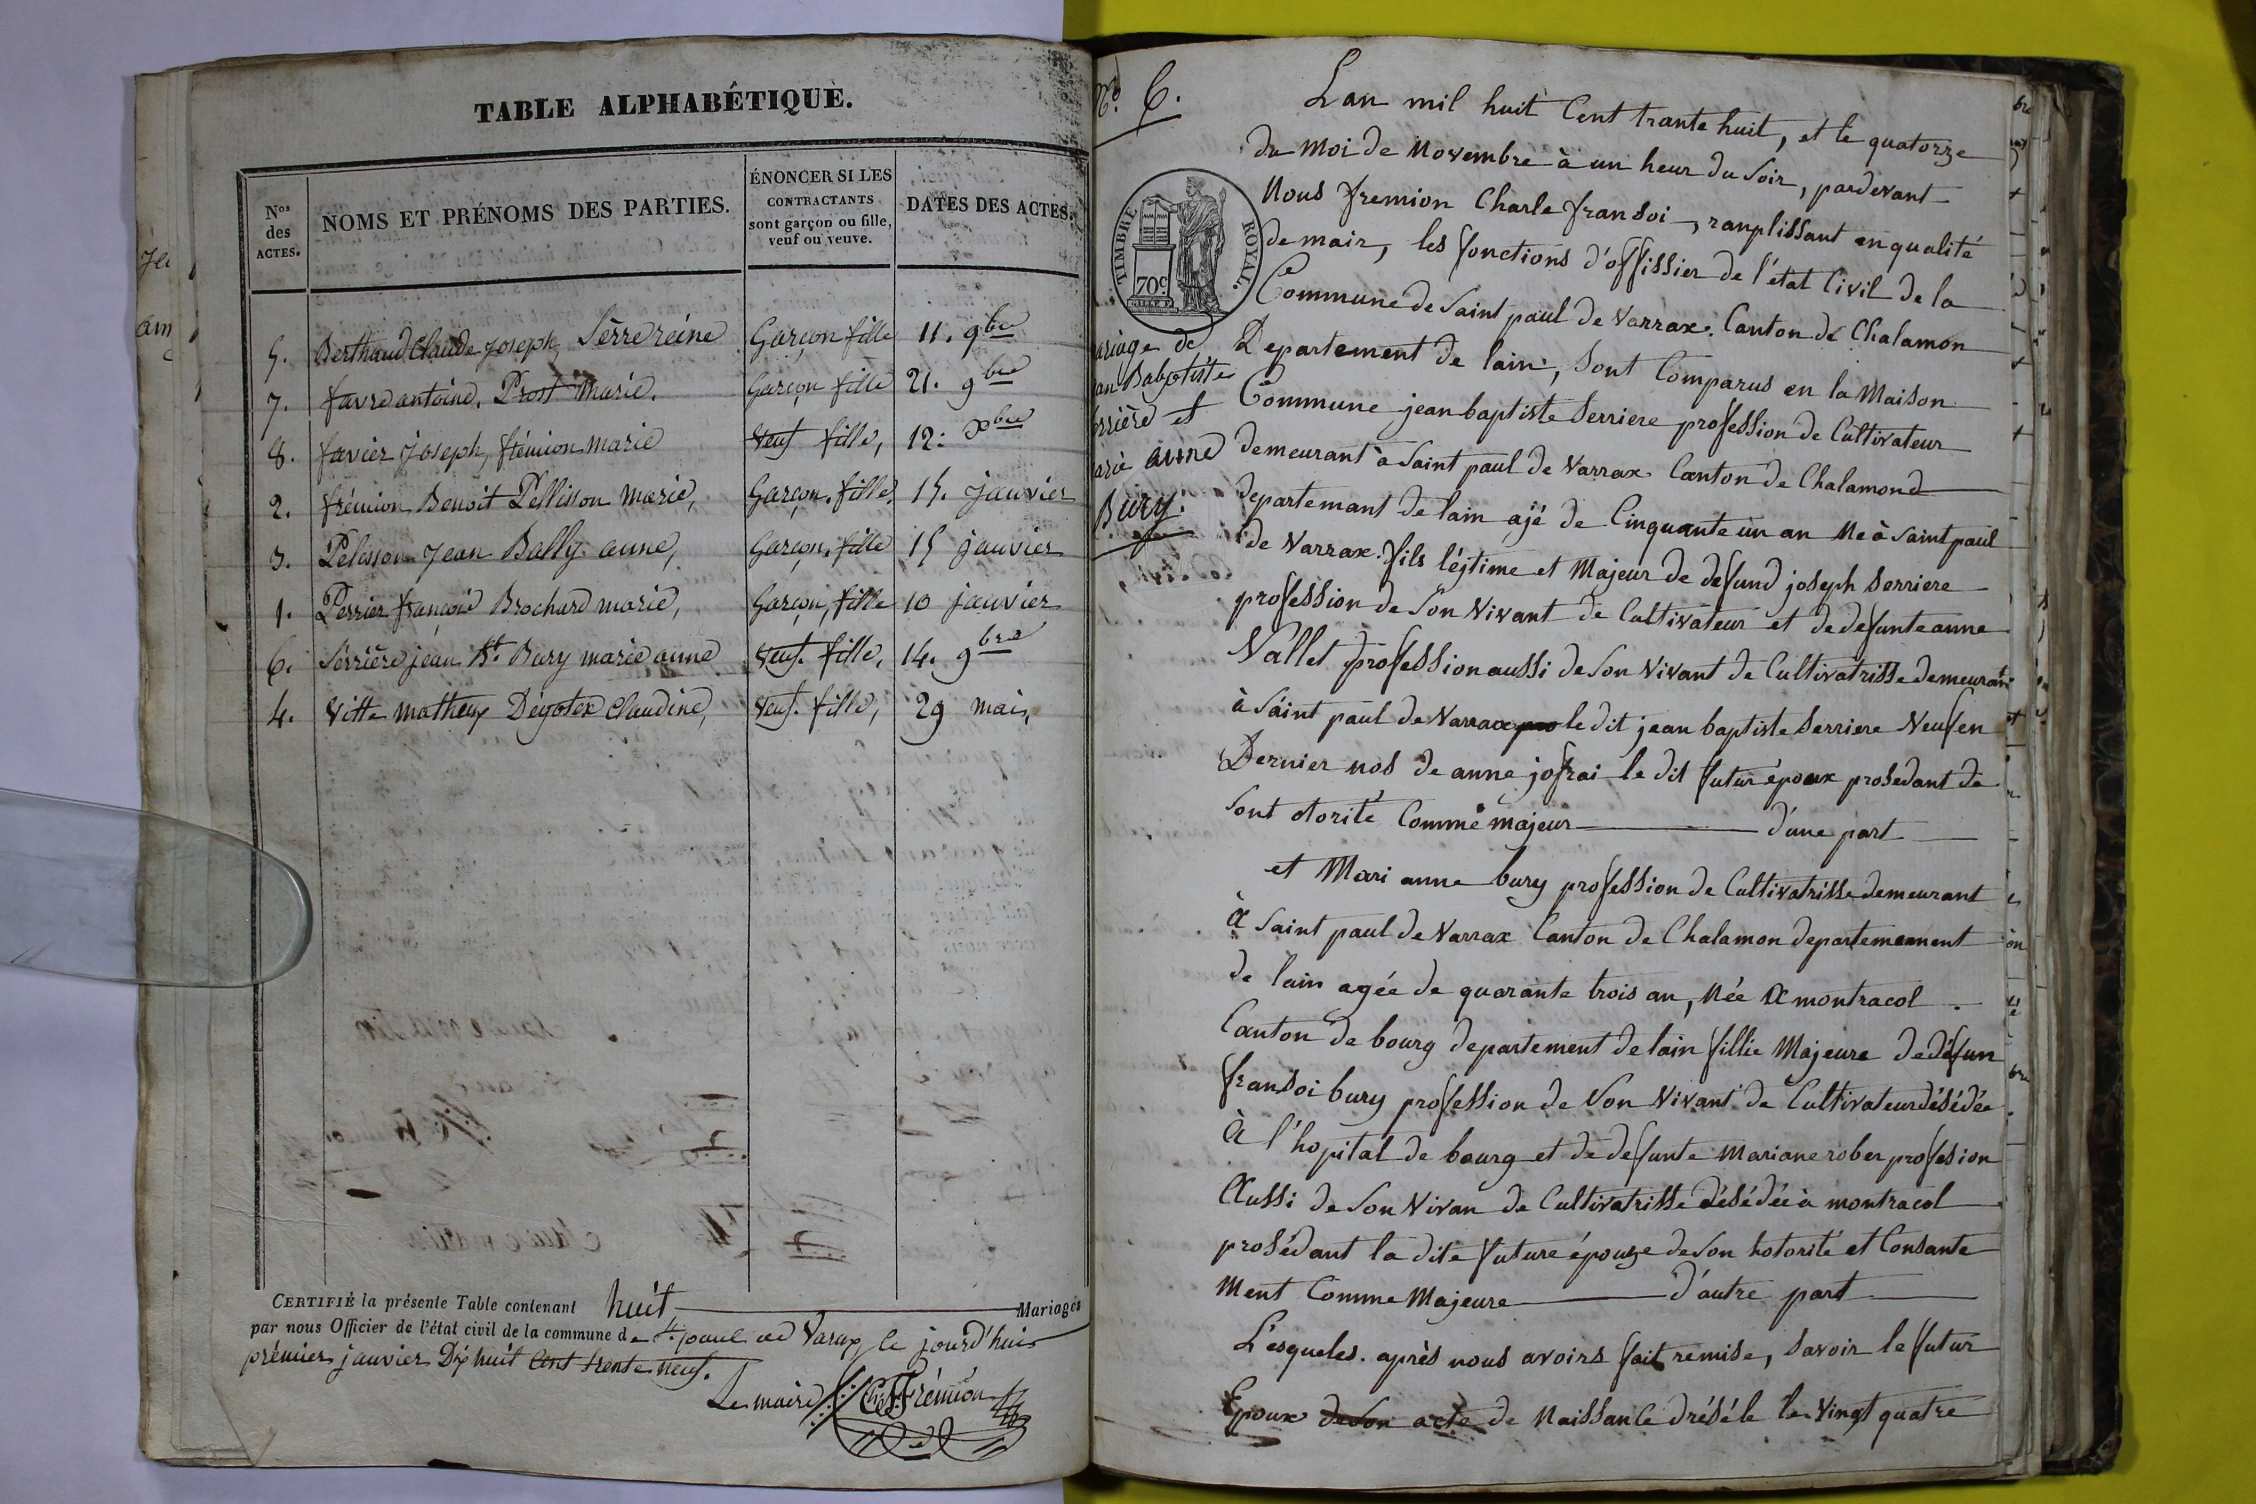 TABLE ALPHABÉTIQUE.
Nos des ACTES.
NOMS ET PRÉNOMS DES PARTIES.
ÉNONCER SI LES CONTRACTANTS sont garçon ou fille, veuf ou veuve.
DATES DES ACTES.
5. Berthaud Claude joseph, Serre reine Garçon fille 11. 9bre
7. favre antoine. Prost Marie. Garçon fille 21. 9bre
8. favier joseph, frémion marie Veuf fille, 12. Xbre
2. frémion Benoit Pellisson Marie, Garçon, fille, 15. janvier
3. Pelisson Jean Bally anne, Garçon, fille 15 janvier
1. Perrier françois Brochard marie, Garçon, fille 10 janvier
6. Serrière jean Bt. Bury marie anne Veuf. fille, 14. 9bre
4. Vitte mathieu Dégotex Claudine, Veuf. fille, 29 mai,
CERTIFIÉ la présente Table contenant huit Mariages
par nous Officier de l'état civil de la commune de St. paul de Varax, le jourd'hui
premier janvier Dix huit Cent trente neuf.
Le maire Ch. Frémion
No. 6.
TIMBRE ROYAL.
70c.
Mariage de
jean Babptiste
Serrière et
Marie anne
Bury.
Lan mil huit Cent trante huit, et le quatorze
du moi de Novembre à un heur du Soir, pardevant
Nous fremion Charle fransoi, ranplissant en qualité
de mair, les fonctions d'offissier de l'état Civil de la
Commune de Saint paul de Varrax. Canton de Chalamon
Departement de lain, Sont Comparus en la Maison
Commune jean baptiste Serriere profession de Cultivateur
demeurant à Saint paul de Varrax Canton de Chalamond
departemant de lain ajé de Cinquante un an Né à Saint paul
de Varrax. fils léjtime et Majeur de defund joseph Serriere
profession de Son Vivant de Cultivateur et de defunte anne
Vallet profession aussi de Son Vivant de Cultivatrisse demeurant
à Saint paul de Varrax pro le dit jean baptiste Serriere Veuf en
Dernier nos de anne jofrai le dit futur époux prosedant de
Sont otorité Comme majeur d'une part
et Mari anne bury profession de Cultivatrisse demeurant
à Saint paul de Varrax Canton de Chalamon departemennent
de lain agée de quarante trois an, Née à montracol
Canton de bourg departement de lain fillie Majeure de défun
fransoi bury profession de Son Vivant de Cultivateur désédée
à l'hopital de bourg et de defunte Mariane rober profesion
aussi de Son Vivan de Cultivatrisse désédée à montracol
prosédant la dite future épouze de Son hotorité et Consante
Ment Comme Majeure d'autre part
L'esqueles. après nous avoirs fait remise, Savoir le futur
Epoux de Son acte de Naissance drésé le le Vingt quatre